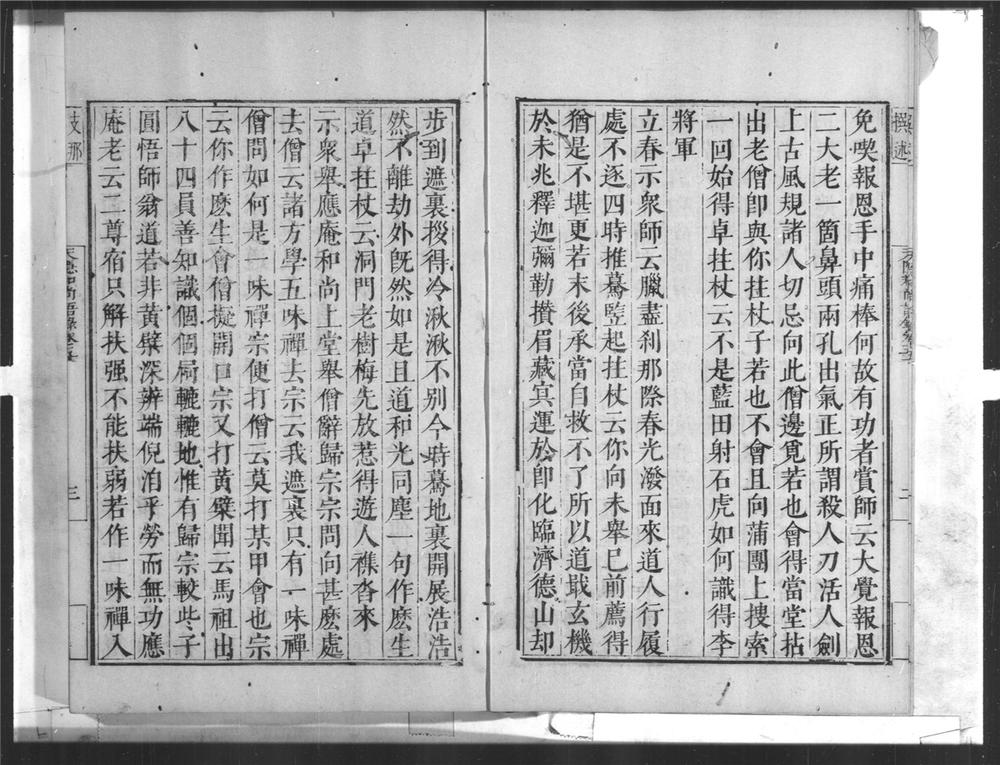 撰述
免喫報恩手中痛棒何故有功者賞師云大覺報恩
二大老一箇鼻頭兩孔出氣正所謂殺人刀活人劍
上古風規諸人切忌向此僧邊覓若也會得當堂拈
出老僧卽與你拄杖子若也不會且向蒲團上摟索
一回始得卓拄杖云不是藍田射石虎如何識得李
將軍
立春示衆師云臘盡刹那際春光潑面來道人行履
處不逐四時推驀竪起拄杖云你向未舉已前薦得
猶是不堪更若末後承當自救不了所以道戢玄機
於未兆釋迦彌勒攢眉藏㝠運於卽化臨濟德山却
二
步到遮裏拶得冷湫湫不別今時驀地裏開展浩浩
然不離劫外旣然如是且道和光同塵一句作麽生
道卓拄杖云洞門老樹梅先放惹得遊人襍沓來
示衆舉應庵和尚上堂舉僧辭歸宗宗問向甚麽處
去僧云諸方學五味禪去宗云我遮裏只有一味禪
僧問如何是一味禪宗便打僧云莫打某甲會也宗
云你作麽生會僧擬開口宗又打黃檗聞云馬祖出
八十四員善知識個個屙轆轆地惟有歸宗較些子
圓悟師翁道若非黃檗深辨端倪洎乎勞而無功應
庵老云二尊宿只解扶强不能扶弱若作一味禪入
支那
三